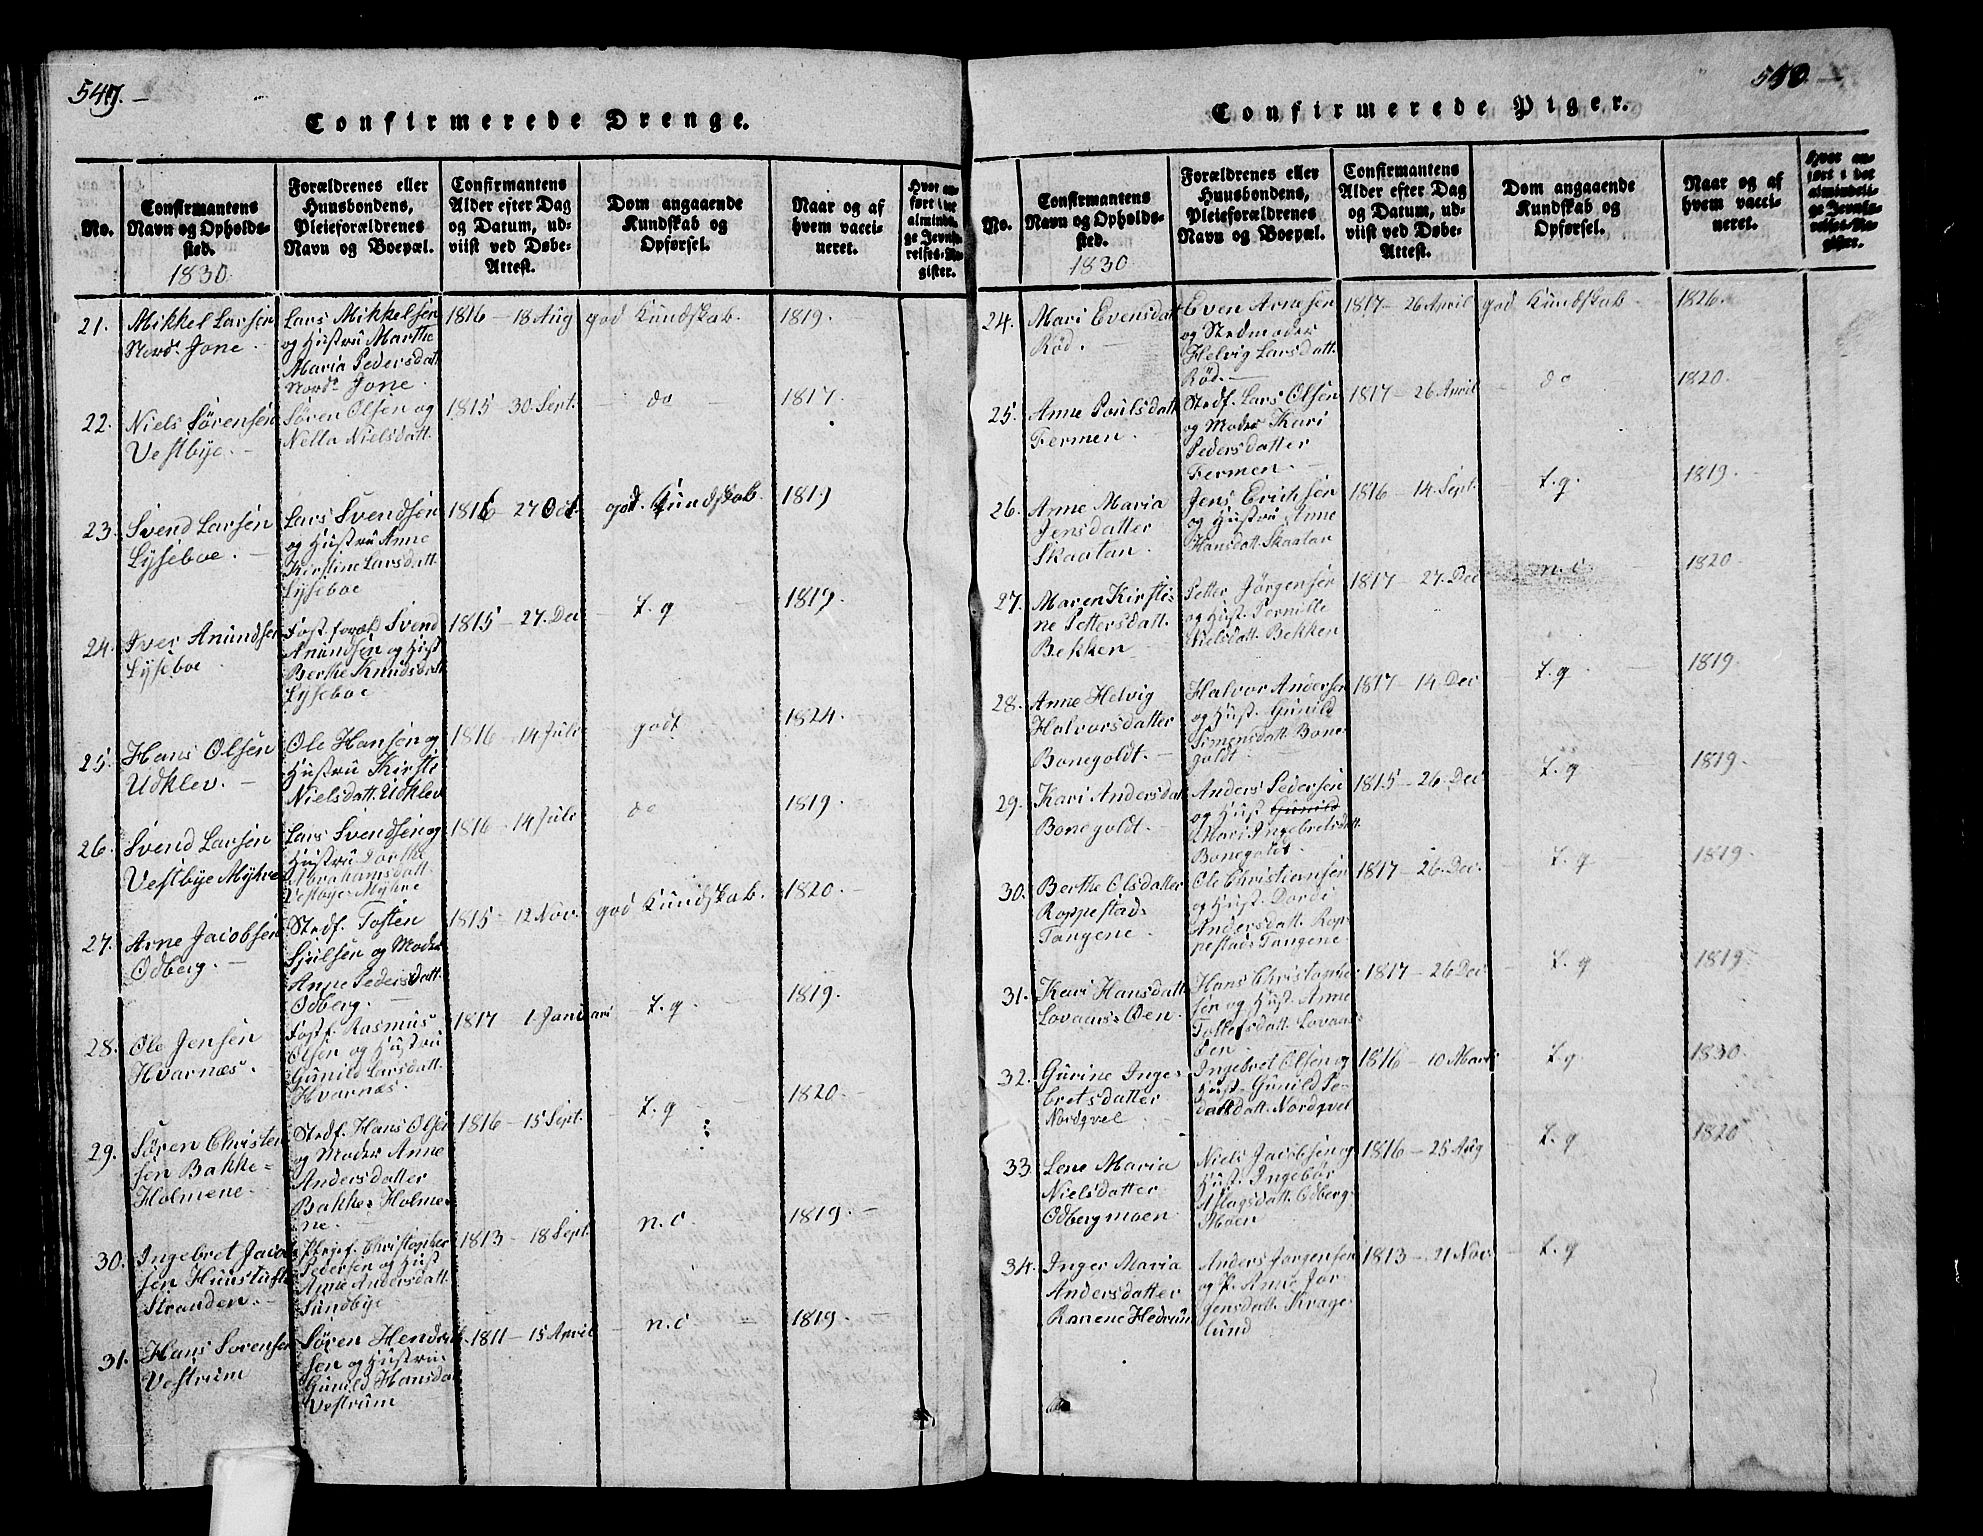 549. —
Confirmerede Drenge.
No.
Confirmantens
Navn og Opholds-
sted.
1830.
Forældrenes eller
Huusbondens,
Pleieforældrenes
Navn og Boepæl.
Confirmantens
Alder efter Dag
og Datum, ud-
viist ved Døbe-
Attest.
Dom angaaende
Kundskab og
Opførsel.
Naar og af
hvem vacci-
neret.
Hvor an-
ført i det
almindeli-
ge Jevnfø-
relses-Re-
gister.
21.
Mikkel Larsen
Nord. Jone.
Lars Mikkelsen
og Hustru Marthe
Maria Pedersdatt.
Nord. Jone.
1816 — 18 Aug
god Kundskab.
1819.
22.
Niels Sørensen
Vestbye. —
Søren Olsen og
Netta Nielsdatt.
1815 — 30 Sept.
do
1817.
23.
Svend Larsen
Lyseboe. —
Lars Svendsen
og Hustru Anne
Kirstine Larsdatt.
Lyseboe
1816 — 27 Oct.
god. Kundskab.
1819
24.
Iver Anundsen
Lyseboe.
Fost. foræld Svend
Anundsen og Hust
Berthe Knudsdatt.
Lyseboe
1815 — 27. Dec
t. g
1819.
25.
Hans Olsen
Udklev. —
Ole Hansen og
Hustru Kirsti
Nielsdatt. Udklev
1816 — 14 Juli
godt
1824.
26.
Svend Larsen
Vestbye Myhre
Lars Svendsen og
Hustru Dorthe
Abrahamsdatt.
Vestbye-Myhre
1816 — 14 Juli
do
1819.
27.
Arne Jacobsen
Odberg. —
Stedf. Tosten
Sjulsen og Moder
Anne Pedersdatt.
Odberg. —
1815 — 12 Nov.
god Kundskab.
1820. —
28.
Ole Jensen
Hvarnæs.
Fostf. Rasmus
Olsen og Hustru
Gunild Larsdatt.
Hvarnæs.
1817 — 1. Januari
t. g.
1819.
29.
Søren Christen
sen Bakke-
Holmene.
Stedf. Hans Olsen
og Moder Anne
Andersdatter
Bakke-Holme-
ne. —
1816 — 15 Sept.
t. g
1820. —
30.
Ingebret Jacob
sen
Stranden. —
Pleief. Christopher
Pedersen og Hust
Anne Andersdatt.
Sundbye
1813 — 18 Sept.
n. c.
1819. —
31.
Hans Sørensen
Vestrum
Søren Hendrik-
sen og Hustru
Gunild Hansdat
Vestrum
1811 — 15 April
n. c
1819. —
550. —
Confirmerede Piger.
No.
Confirmantens
Navn og Opholds-
sted.
1830
Forældrenes eller
Huusbondens,
Pleieforældrenes
Navn og Boepæl.
Confirmantens
Alder efter Dag
og Datum, ud-
viist ved Døbe-
Attest.
Dom angaaende
Kundskab og
Opførsel.
Naar og af
hvem vacci-
neret.
Hvor an-
ført i det
almindeli-
ge Jevnfø-
relses-Re-
gister.
24.
Mari Evensdatt
Rød. —
Even Arnesen
og Stedmoder
Helvig Larsdatt.
Rød. —
1817 — 26 April
god Kundskab
1826.
25.
Anne Poulsdatt
Fermen. —
Stedf. Lars Olsen
og Moder Kari
Pedersdatter
Fermen. —
1817 — 26 April
do
1820.
26.
Anne Maria
Jensdatter
Skaatan.
Jens Eriksen
og Hustru Anne
Hansdatt. Skaatan
1816 — 14 Sept.
t. g.
1819.
27.
Maren Kirsti-
ne Pettersdatt.
Bekken
Petter Jørgensen
og Hust. Pernille
Nielsdatt. Bekken
1817 — 27. Dec
n. c.
1820
28.
Anne Helvig
Halvorsdatter
Bonegoldt. —
Halvor Andersen
og Hust. Gunild
Simensdatt. Bone-
goldt. —
1817 — 14 Dec
t. g
1819.
29.
Kari Andersdatt
Bonegoldt. —
Anders Pedersen
og Hust Gunild
Mari Ingebretsdatt.
Bonegoldt
1815 — 26. Dec
t. g
1819.
30.
Berthe Olsdatter
Roppestad-
Tangene.
Ole Christiansen
og Hust. Dordi
Andersdatt. Rop-
pestads Tangene
1817 — 26. Dec.
t. g
1819.
31.
Kari Hansdatt.
Lovaas-Øen.
Hans Christophe
sen og Hust. Anne
Tollefsdatt. Lovaas-
Øen
1817 — 26 Dec
t. g
1819.
32.
Gurine Inge-
bretsdatter
Nordqvel
Ingebret Olsen og
Hust. Gunild Pe-
dersdatt. Nordqvel
1816 — 10 Marts
t. g.
1830.
33
Lene Maria
Nielsdatter
Odbergmoen
Niels Jacobsen og
Hust. Ingebør
Aslagsdatt. Odberg-
Moen
1816 — 25 Aug
t. g
1820
34.
Inger Maria
Andersdatter
Ranene Hedrum
Anders Jørgensen
og P. Anne Jør-
gensdatt. Krage-
lund
1813 — 21 Nov.
t. g